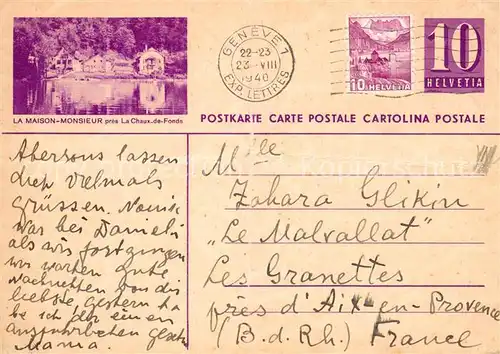 LA MAISON-MONSIEUR près La Chaux-de-Fonds
GENÈVE 1
22-23
23.VIII
1940
EXP. LETTRES
10 HELVETIA
10
HELVETIA
POSTKARTE CARTE POSTALE CARTOLINA POSTALE
Mlle
Zohara Glikin
"Le Malvallat"
Les Granettes
près d'Aix-en-Provence
(B.d.Rh.) France
lassen
dich vielmals
grüssen.
War bei Daniel
als wir fortgingen
wir warten gute
Nachrichten von dir
liebste gestern ha
be ich dir einen
ausführlichen
Mama.